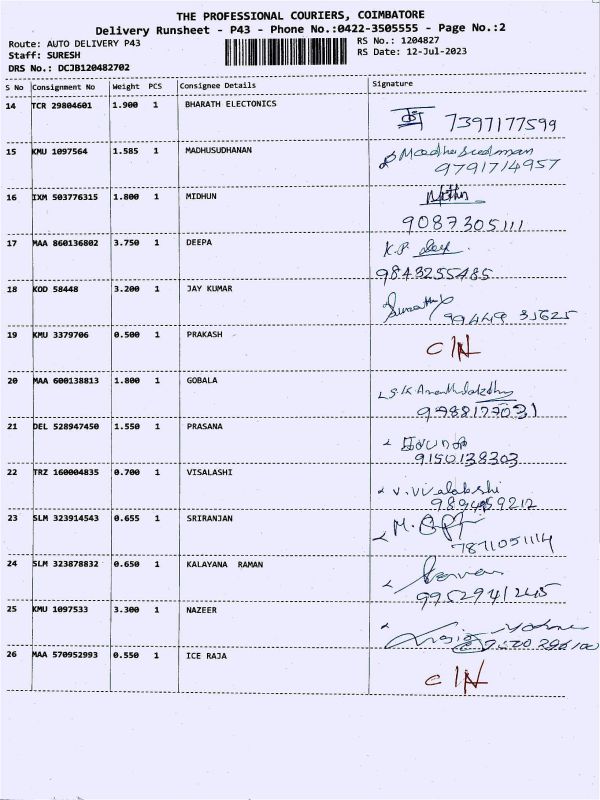 THE PROFESSIONAL COURIERS, COIMBATORE
Delivery Runsheet - P43 - Phone No.:0422-3505555 - Page No.:2
Route: AUTO DELIVERY P43 RS No.: 1204827
Staff: SURESH RS Date: 12-Jul-2023
DRS No.: DCJB120482702
S No Consignment No Weight PCS Consignee Details Signature
14 TCR 29804601 1.900 1 BHARATH ELECTONICS
7397177599
15 KMU 1097564 1.585 1 MADHUSUDHANAN
9791714957
16 IXM 503776315 1.800 1 MIDHUN
9087305111
17 MAA 860136802 3.750 1 DEEPA K.P
9843255485
18 KOD 58448 3.200 1 JAY KUMAR
99449 35625
19 KMU 3379706 0.500 1 PRAKASH
C/N
20 MAA 600138813 1.800 1 GOBALA
9788177031
21 DEL 528947450 1.550 1 PRASANA
9150138303
22 TRZ 160004835 0.700 1 VISALASHI
V. Vivalakshi
23 SLM 323914543 0.655 1 SRIRANJAN
7871051114
24 SLM 323878832 0.650 1 KALAYANA RAMAN
9952941245
25 KMU 1097533 3.300 1 NAZEER
26 MAA 570952993 0.550 1 ICE RAJA
C/N